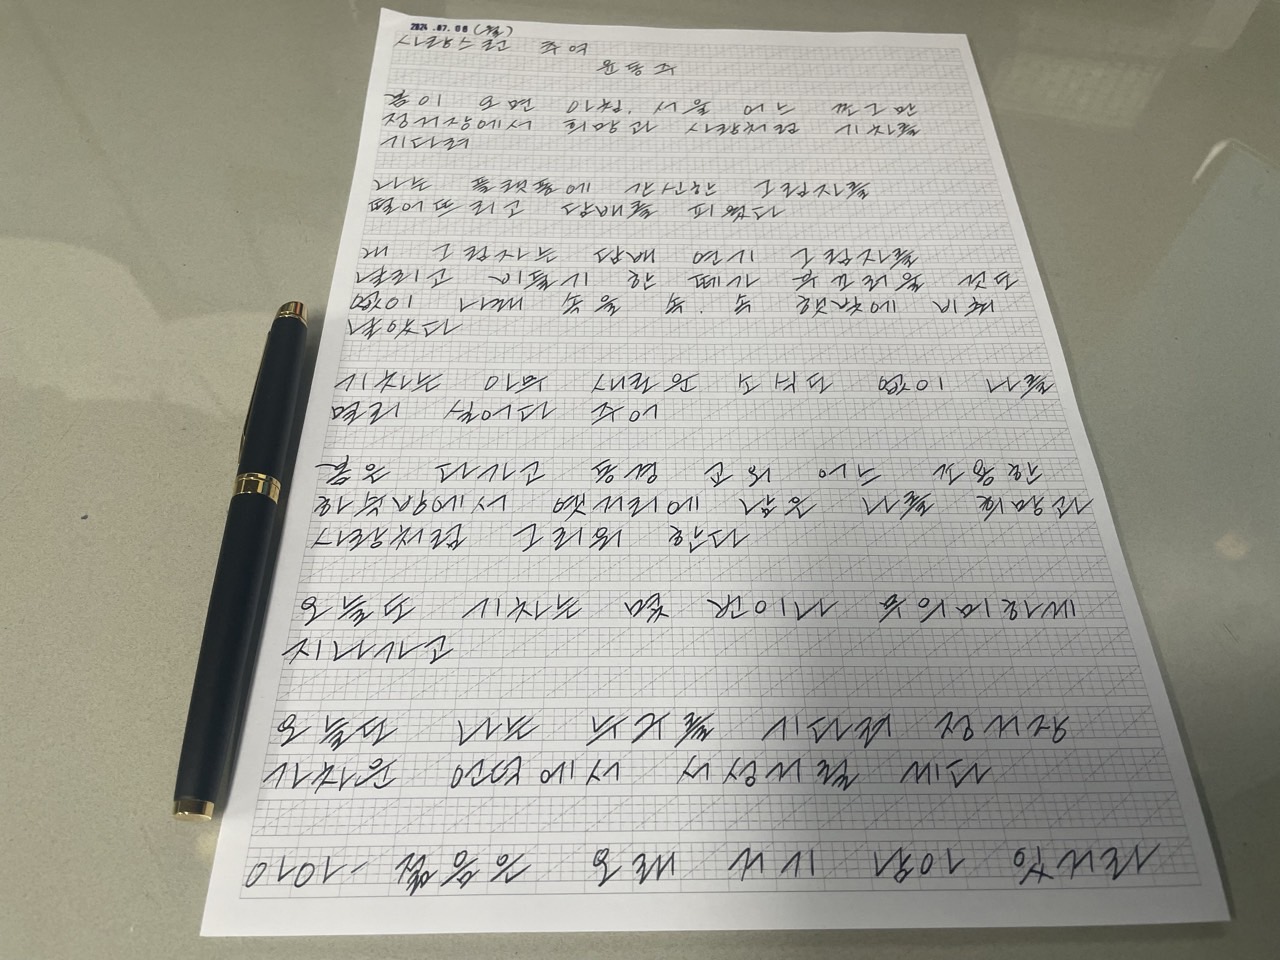 2024.07.08 (월)
사랑스런 추억
윤동주
봄이 오던 아침, 서울 어느 쪼그만
정거장에서 희망과 사랑처럼 기차를
기다려
나는 플랫폼에 간신한 그림자를
떨어뜨리고 담배를 피웠다
내 그림자는 담배 연기 그림자를
날리고 비둘기 한 떼가 부끄러울 것도
없이 나래 속을 속, 속 햇빛에 비춰
날았다
기차는 아무 새로운 소식도 없이 나를
멀리 실어다 주어
봄은 다가고 동경 교외 어느 조용한
하숙방에서 옛거리에 남은 나를 희망과
사랑처럼 그리워 한다
오늘도 기차는 몇 번이나 무의미하게
지나가고
오늘도 나는 누구를 기다려 정거장
가차운 언덕에서 서성거릴 게다
아아- 젊음은 오래 거기 남아 있거라